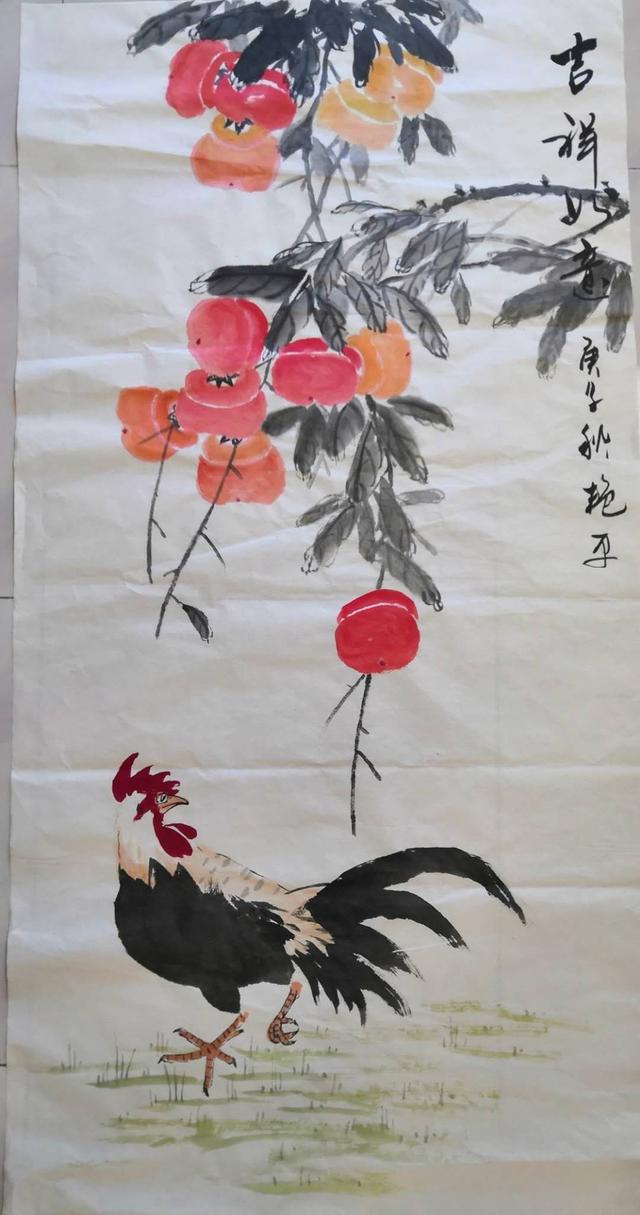 吉祥如意
庚子秋艳平